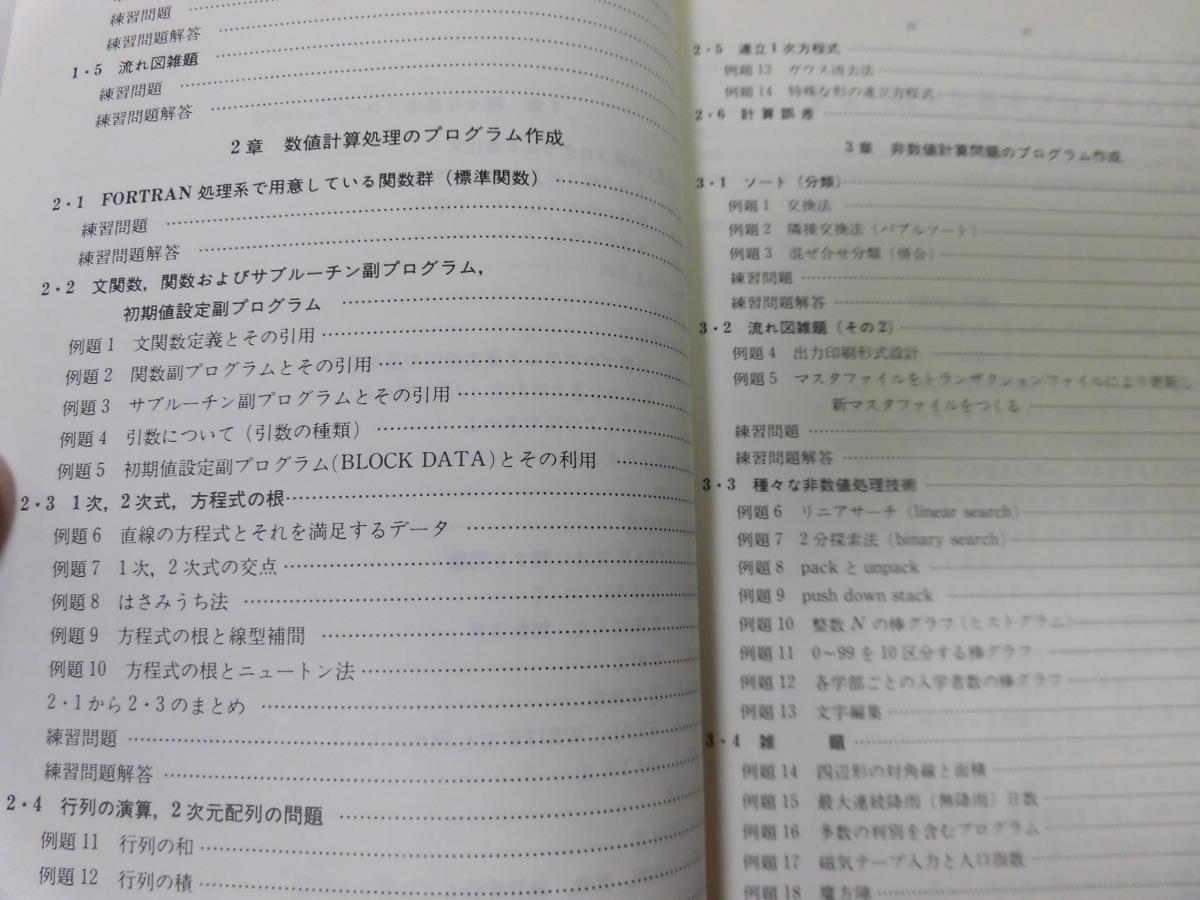 練習問題
練習問題解答
1・5 流れ図雑題
練習問題
練習問題解答
2章 数値計算処理のプログラム作成
2・1 FORTRAN処理系で用意している関数群(標準関数)
練習問題
練習問題解答
2・2 文関数,関数およびサブルーチン副プログラム,
初期値設定副プログラム
例題1 文関数定義とその引用
例題2 関数副プログラムとその引用
例題3 サブルーチン副プログラムとその引用
例題4 引数について(引数の種類)
例題5 初期値設定副プログラム(BLOCK DATA)とその利用
2・3 1次,2次式,方程式の根
例題6 直線の方程式とそれを満足するデータ
例題7 1次,2次式の交点
例題8 はさみうち法
例題9 方程式の根と線型補間
例題10 方程式の根とニュートン法
2・1から2・3のまとめ
練習問題
練習問題解答
2・4 行列の演算,2次元配列の問題
例題11 行列の和
例題12 行列の積
2・5 連立1次方程式
例題13 ガウス消去法
例題14 特殊な形の連立方程式
2・6 計算誤差
3章 非数値計算問題のプログラム作成
3・1 ソート(分類)
例題1 交換法
例題2 隣接交換法(バブルソート)
例題3 混ぜ合せ分類(併合)
練習問題
練習問題解答
3・2 流れ図雑題(その2)
例題4 出力印刷形式設計
例題5 マスタファイルをトランザクションファイルにより更新し
新マスタファイルをつくる
練習問題
練習問題解答
3・3 種々な非数値処理技術
例題6 リニアサーチ(linear search)
例題7 2分探索法(binary search)
例題8 packとunpack
例題9 push down stack
例題10 整数Nの棒グラフ(ヒストグラム)
例題11 0~99を10区分する棒グラフ
例題12 各学部ごとの入学者数の棒グラフ
例題13 文字編集
3・4 雑題
例題14 四辺形の対角線と面積
例題15 最大連続降雨(無降雨)日数
例題16 多数の判別を含むプログラム
例題17 磁気テープ入力と人口指数
例題18 魔方陣